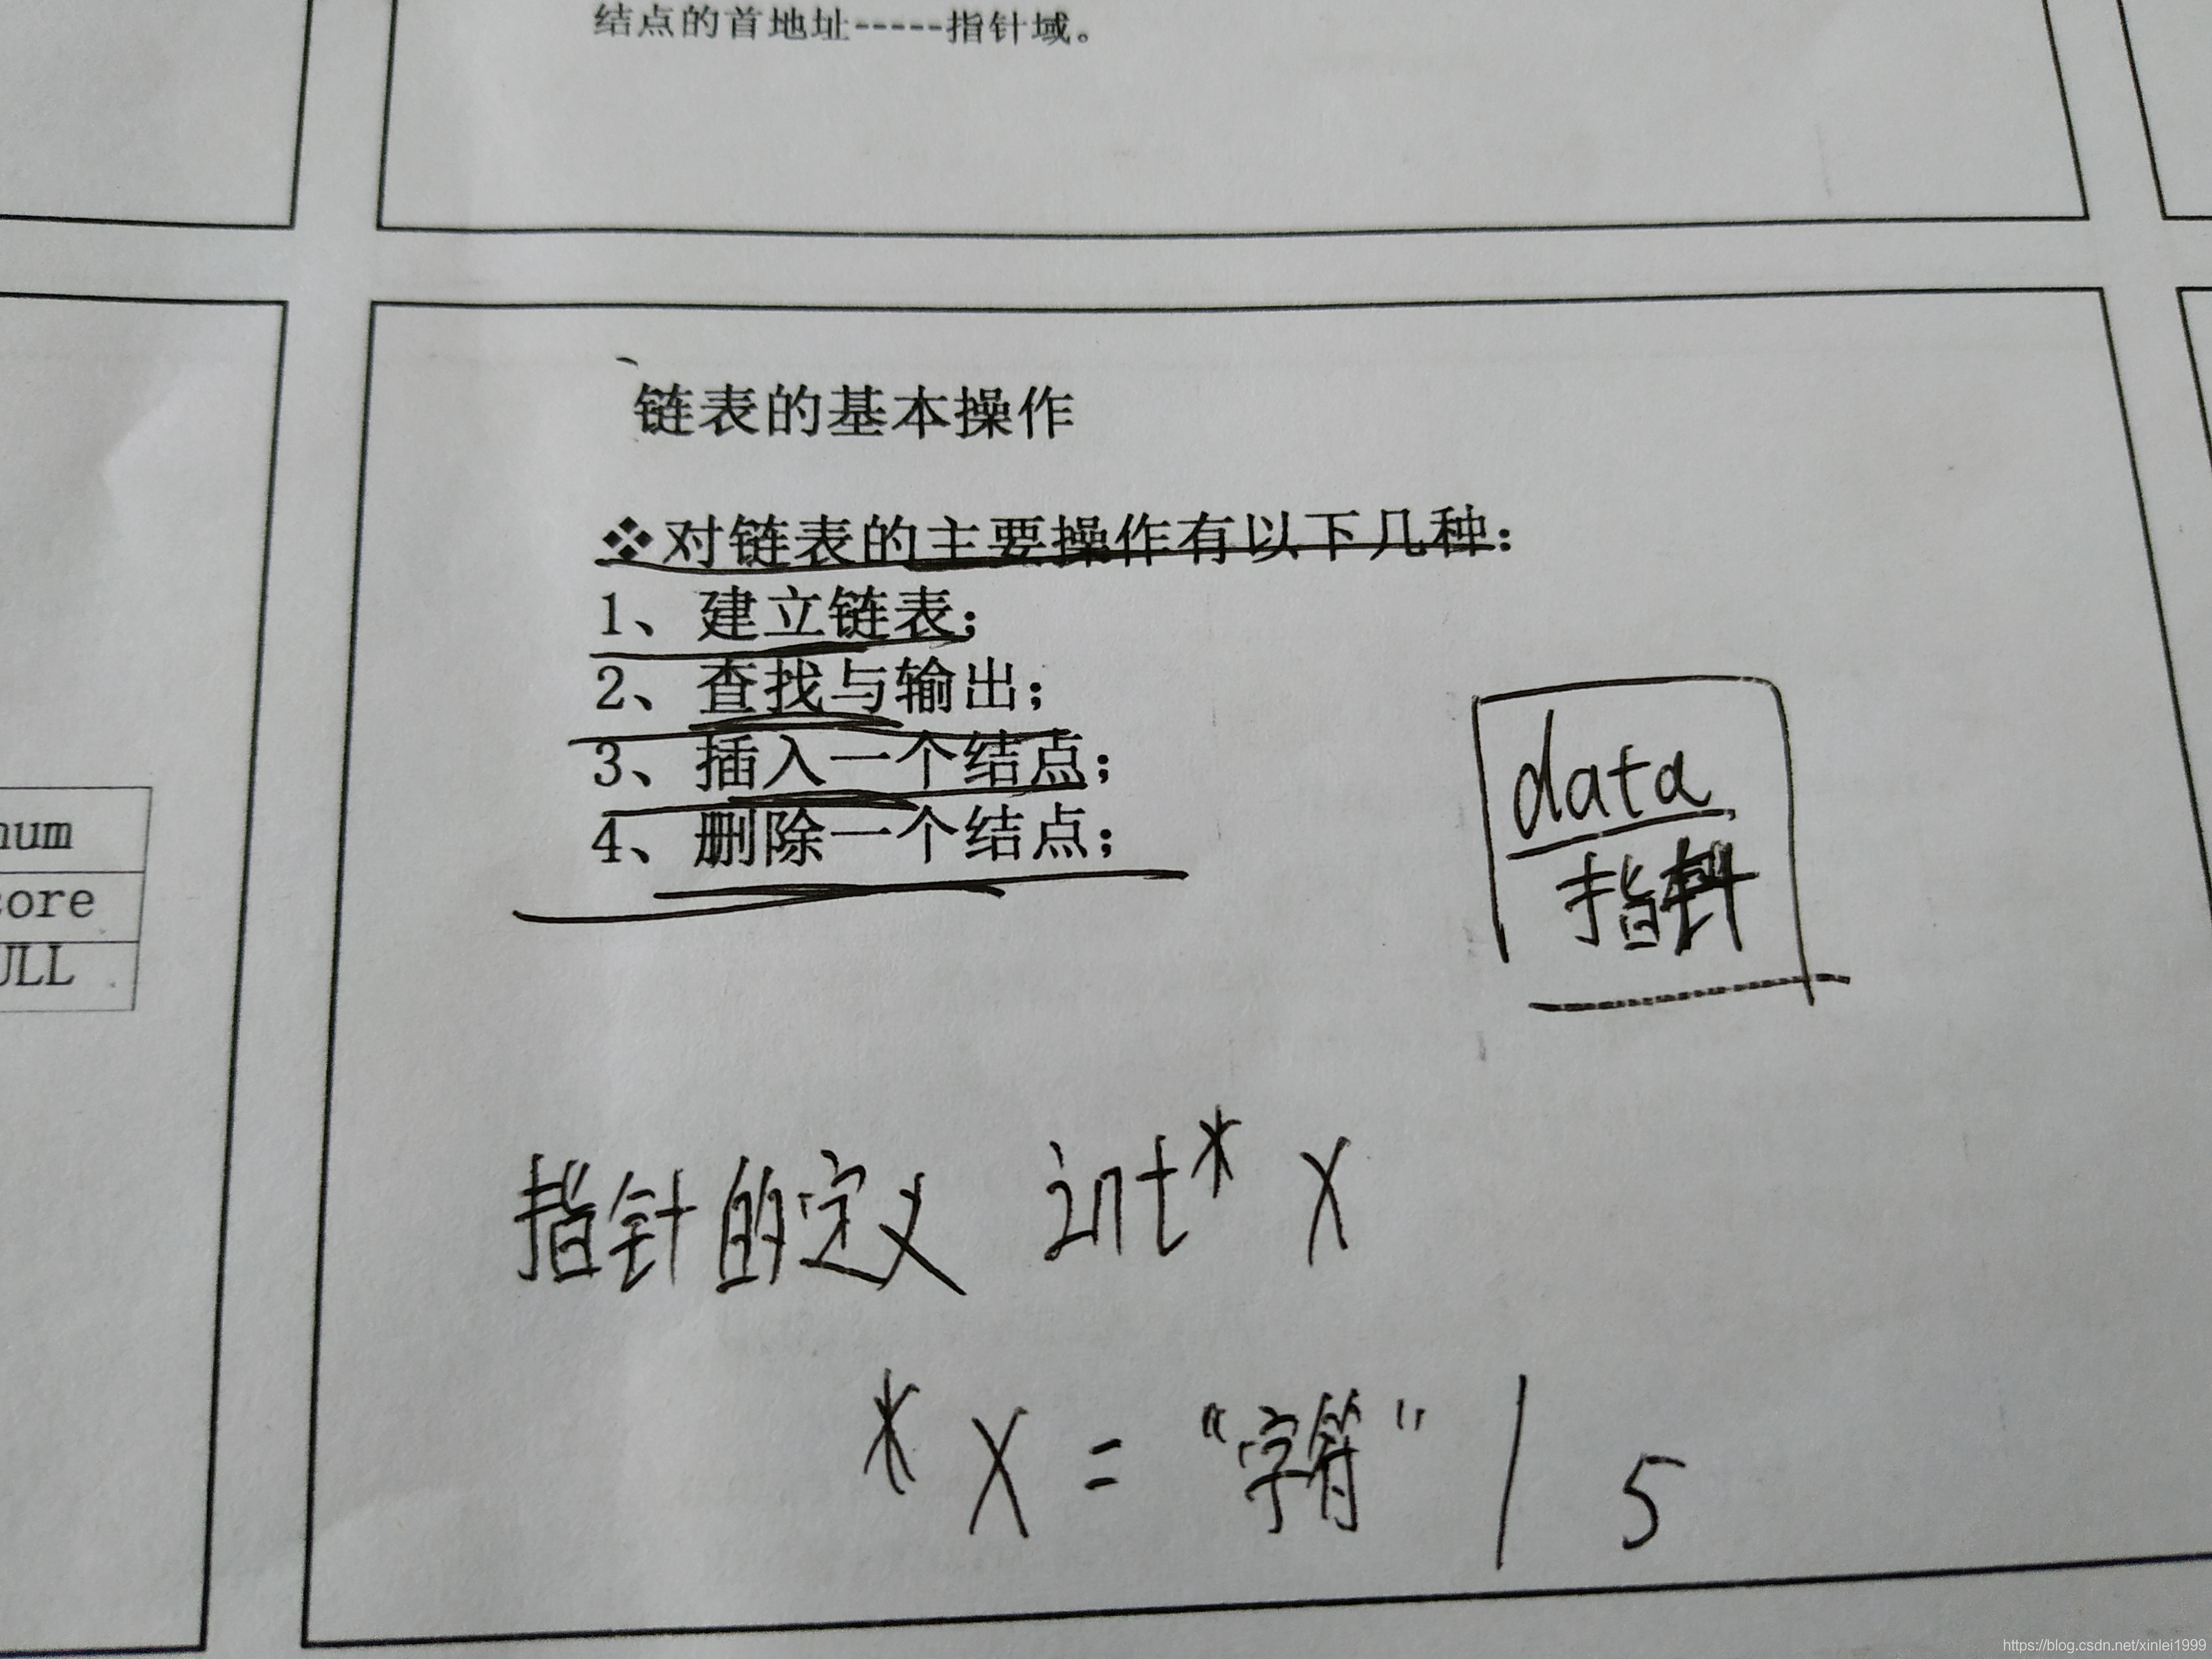 结点的首地址-----指针域。
链表的基本操作
❖对链表的主要操作有以下几种:
1、建立链表;
2、查找与输出;
3、插入一个结点;
4、删除一个结点;
num
core
ULL
data
指针
指针的定义 int* x
*x = “字符” / 5
https://blog.csdn.net/xinlei1999